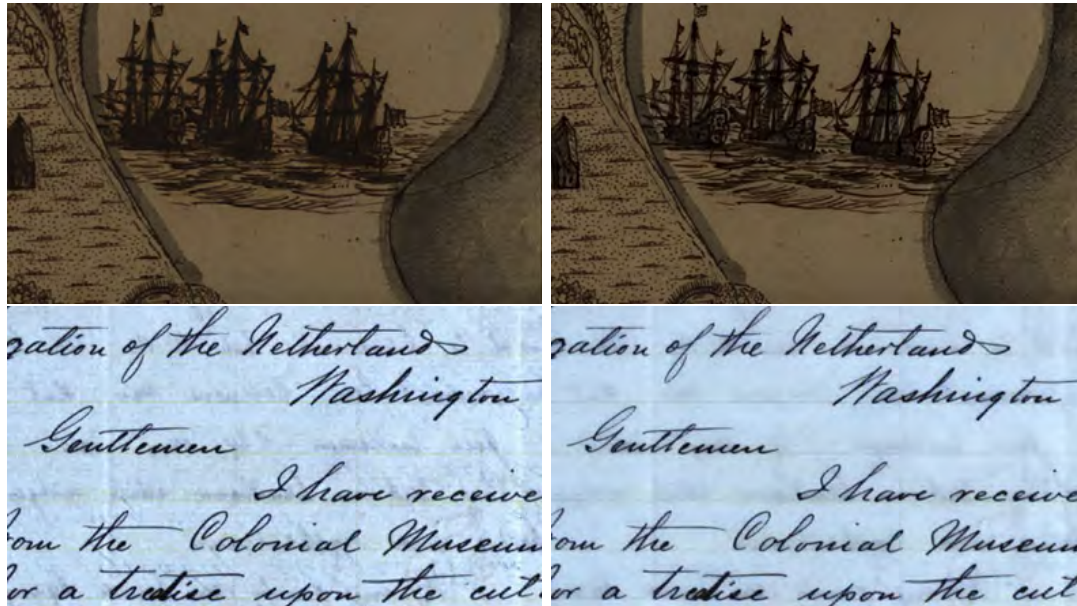 gation of the Netherlands
Washington
Gentlemen
I have receive
om the Colonial Museum
or a treatise upon the cul
gation of the Netherlands
Washington
Gentlemen
I have receive
om the Colonial Museum
or a treatise upon the cul